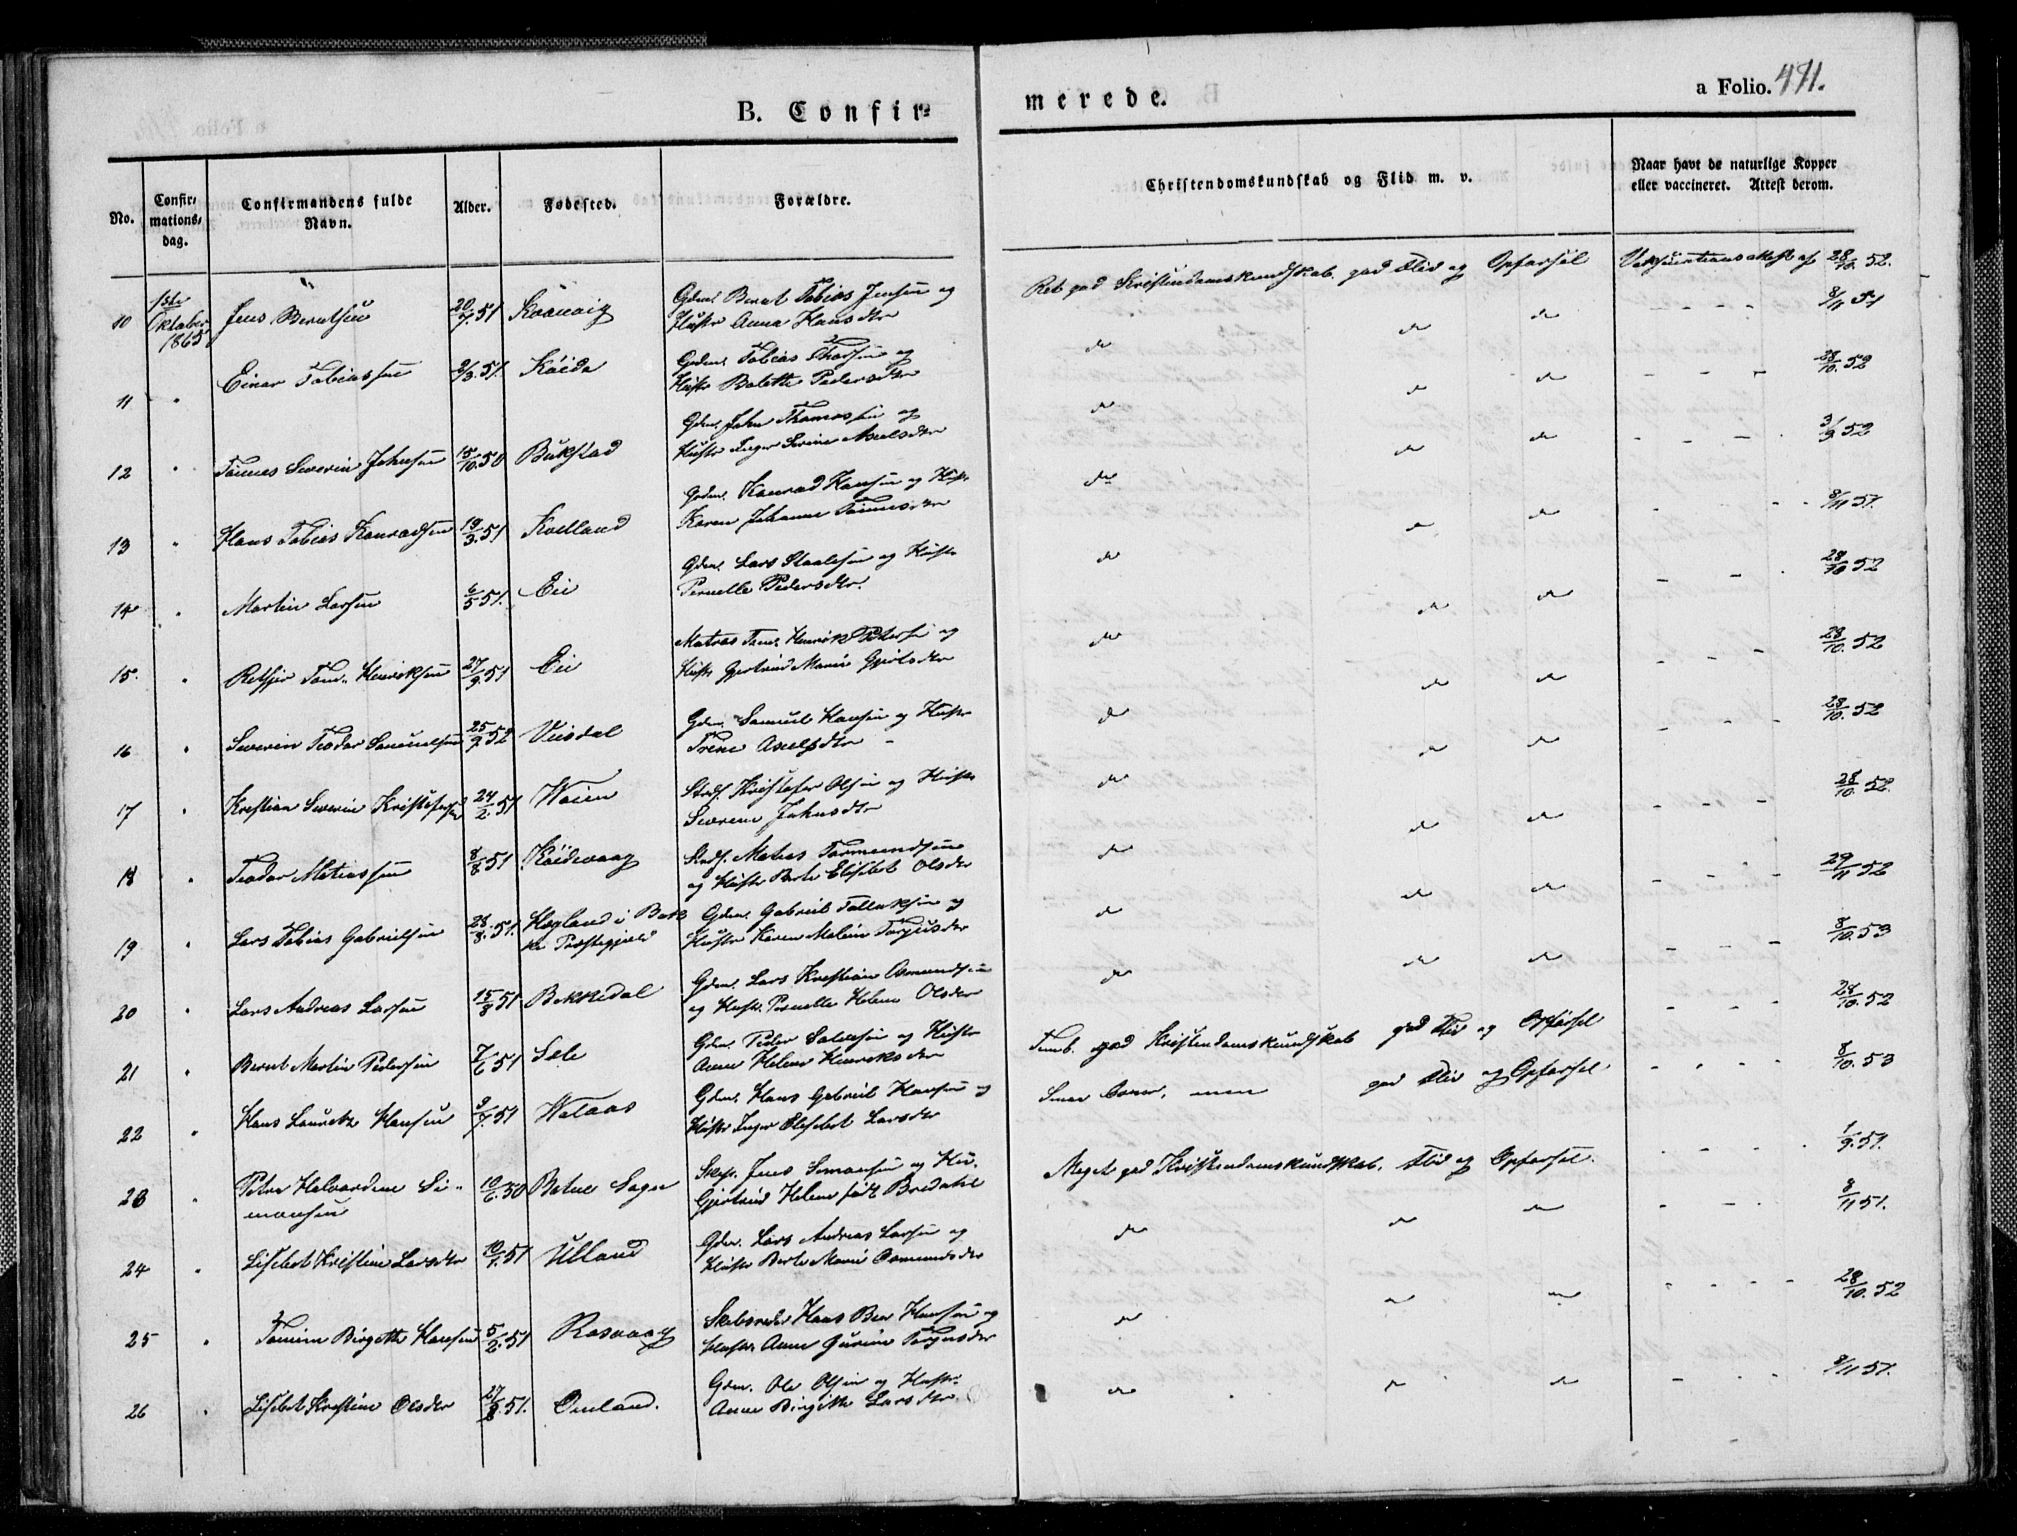 B. Confir=
merede.
a Folio. 471.
No.
Confir=
mations=
dag.
Confirmandens fulde
Navn.
Alder.
Fødested.
Forældre.
Christendomskundskab og Flid m. v.
Naar havt de naturlige Kopper
eller vaccineret. Attest derom.
10 1ste Oktober 1865 Jens Berntsen 20/7.51 Gdm. Bernt Tobias Jensen og
Hustr Anna Hansdtr
Ret god Kristendomskundskab. god Flid og Opførsel 28/10.52.
8/11 51
11 " Einar Tobiassen 2/3.51. Gdm. Tobias og
Hustr Bolette Pedersdtr
do do do - - - 28/10.52
12 " Tønnes Severin Johnsen 15/10.50 Bukstad Gdm. John Thomassen og
Hustr Inger Serine Axelsdtr
do do do - - - 3/9 52
13 " Hans Tobias Konradsen 19/3.51 Kvelland Gdm. Konrad Hansen og Hustr
Karen Johanne Tønnesdtr
do do do - - - 8/11 51.
14 " Martin Larsen 6/5 51. Eie Gdm. Lars Staalesen og Hustr
Pernelle Pedersdtr.
do do do - - - 28/10 52
15 " Tom. Henriksen 27/9 51 Eie Matros Henrik Petersen og
Hustr Gjertrud Marie
do do do - - - 28/10.52
16 " Severin Teodor Samuelsen 25/9 52 Veisdal Gdm. Samuel Hansen og Hustr
Trene Axelsdtr
do do do - - - 28/10.52
17 " Krestian Severin Kristofersen 24/2.51 Kristofer Olsen og Hustr
Severene Johnsdtr
do do do - - - 28/10.52
18 " Teodor Matiassen 8/8 51 Matias Tormundsen
og Hustr Berte Elisebet Olsdtr
do do do - - - 29/11 52
19 " Lars Tobias Gabrielsen 28/8.51. Hægland i Bak
ke Præstegjeld
Gdm. Gabriel Tollaksen og
Hustr Karen Malene Torjusdtr
do do do - - - 8/10.53
20 " Lars Andreas Larsen 15/8 51 Bekkedal Gdm. Lars Krestian Osmundsen
og Hustr. Pernelle Helene Olsdtr
do do do - - - 28/10.52
21 " Bernt Martin Pedersen 7/6 51 Sele Gdm. Peder Salvesen og Hustr
Anne Helene Henriksdtr
god Kristendomskundskab god Flid og Opførsel
- - - 8/10.53
22 " Hans Lauretz Hansen 9/7 51 Gdm. Hans Gabriel Hansen og
Hustr Inger Elisebet Larsdtr
men god Flid og Opførsel
- - - 1/9.51.
23 " Petra Halvardine Si-
monsen
10/6.50 Jens Simonsen og Hu.
Gjertrud Helene født Bredahl
Meget god Kristendomskundskab. Flid og Opførsel.
- - - 8/11 51.
24 " Lisebet Kristine Larsdtr 10/7.51 Ulland Gdm. Lars Andreas Larsen og
Hustr Berte Marie Osmundsdtr
do do do - - - 28/10.52
25 " Tomine Birgitte Hansen 5/2.51 Rasvaag Skibsreder Hans Hansen og
Hustr. Anne Torjusdtr
do do do
26 " Lisebet Krestine Olsdtr 27/8.51. Omland. Gdm. Ole Olsen og Hustr.
Anne Birgitte Larsdtr
do do do - - - 8/11 51.